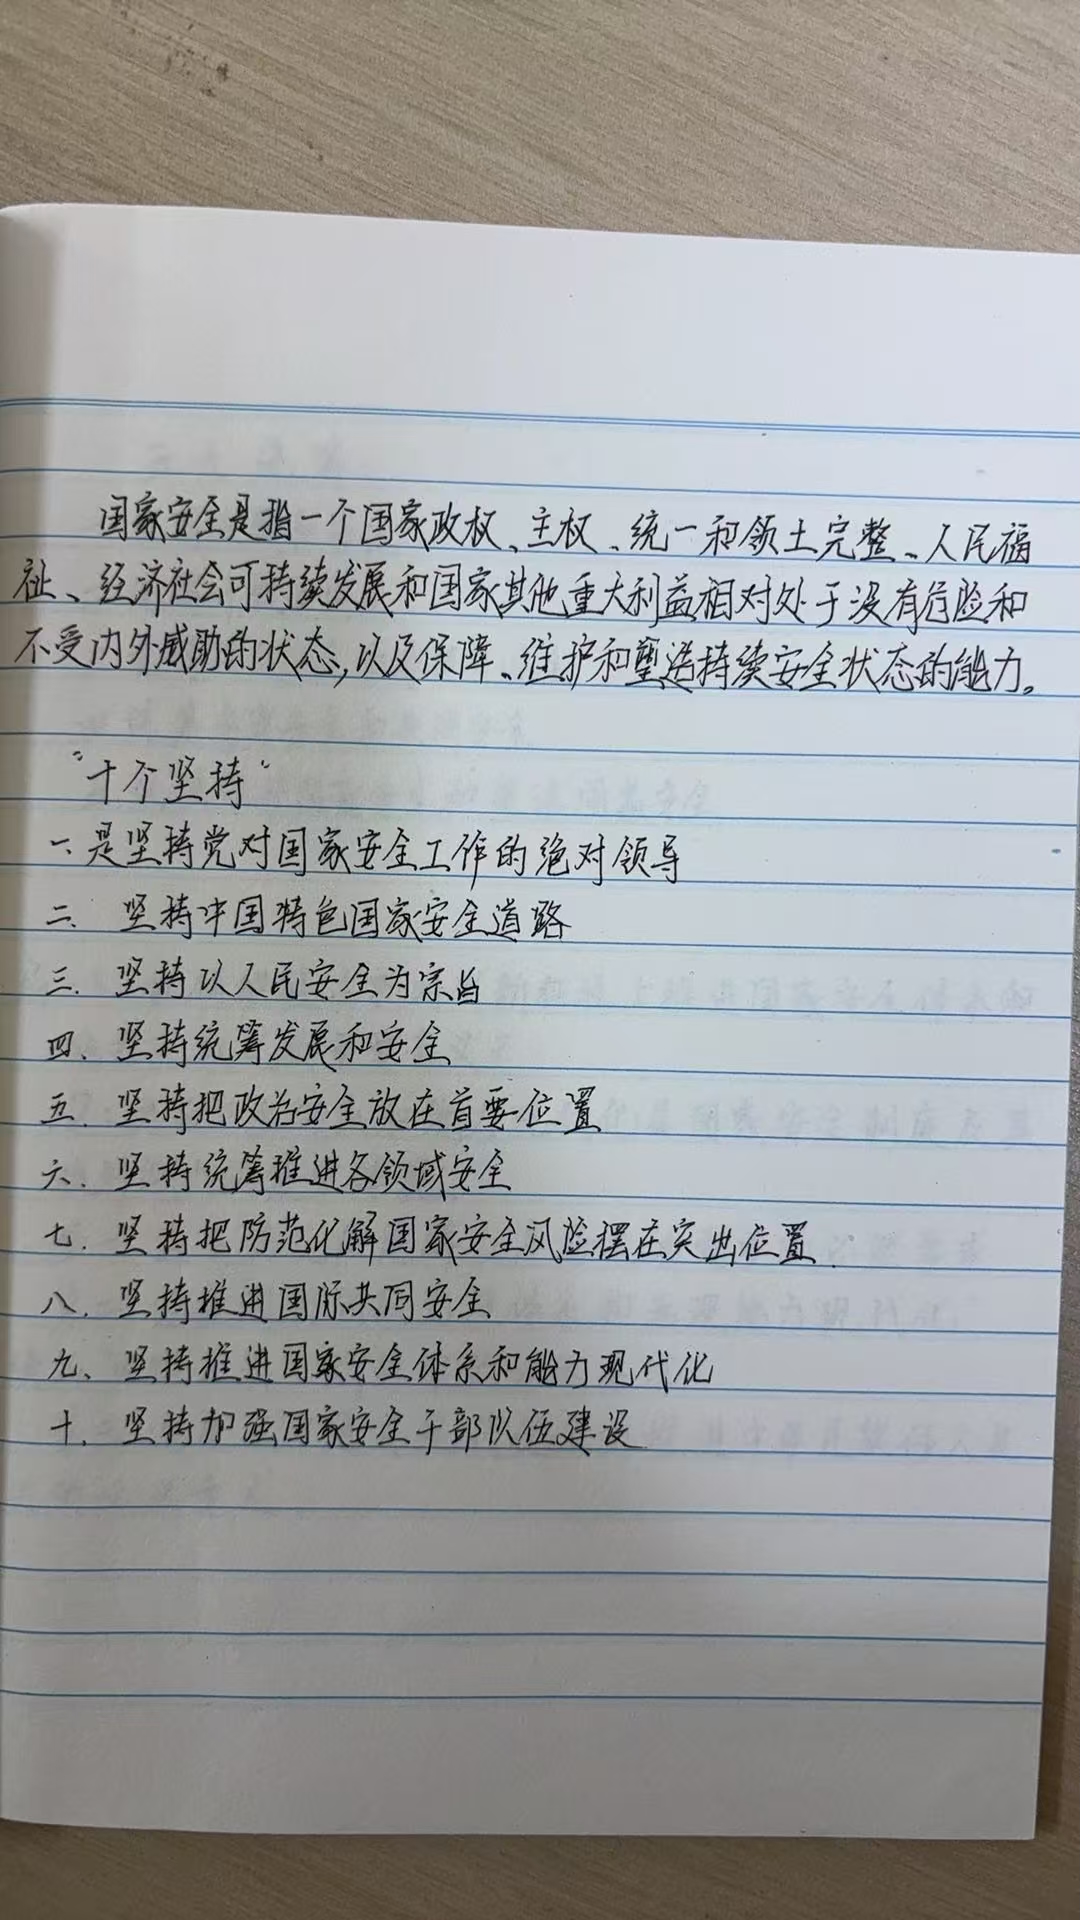 国家安全是指一个国家政权、主权、统一和领土完整、人民福
祉、经济社会可持续发展和国家其他重大利益相对处于没有危险和
不受内外威胁的状态,以及保障、维护和塑造持续安全状态的能力。
“十个坚持”
一、是坚持党对国家安全工作的绝对领导
二、坚持中国特色国家安全道路
三、坚持以人民安全为宗旨
四、坚持统筹发展和安全
五、坚持把政治安全放在首要位置
六、坚持统筹推进各领域安全
七、坚持把防范化解国家安全风险摆在突出位置
八、坚持推进国际共同安全
九、坚持推进国家安全体系和能力现代化
十、坚持加强国家安全干部队伍建设